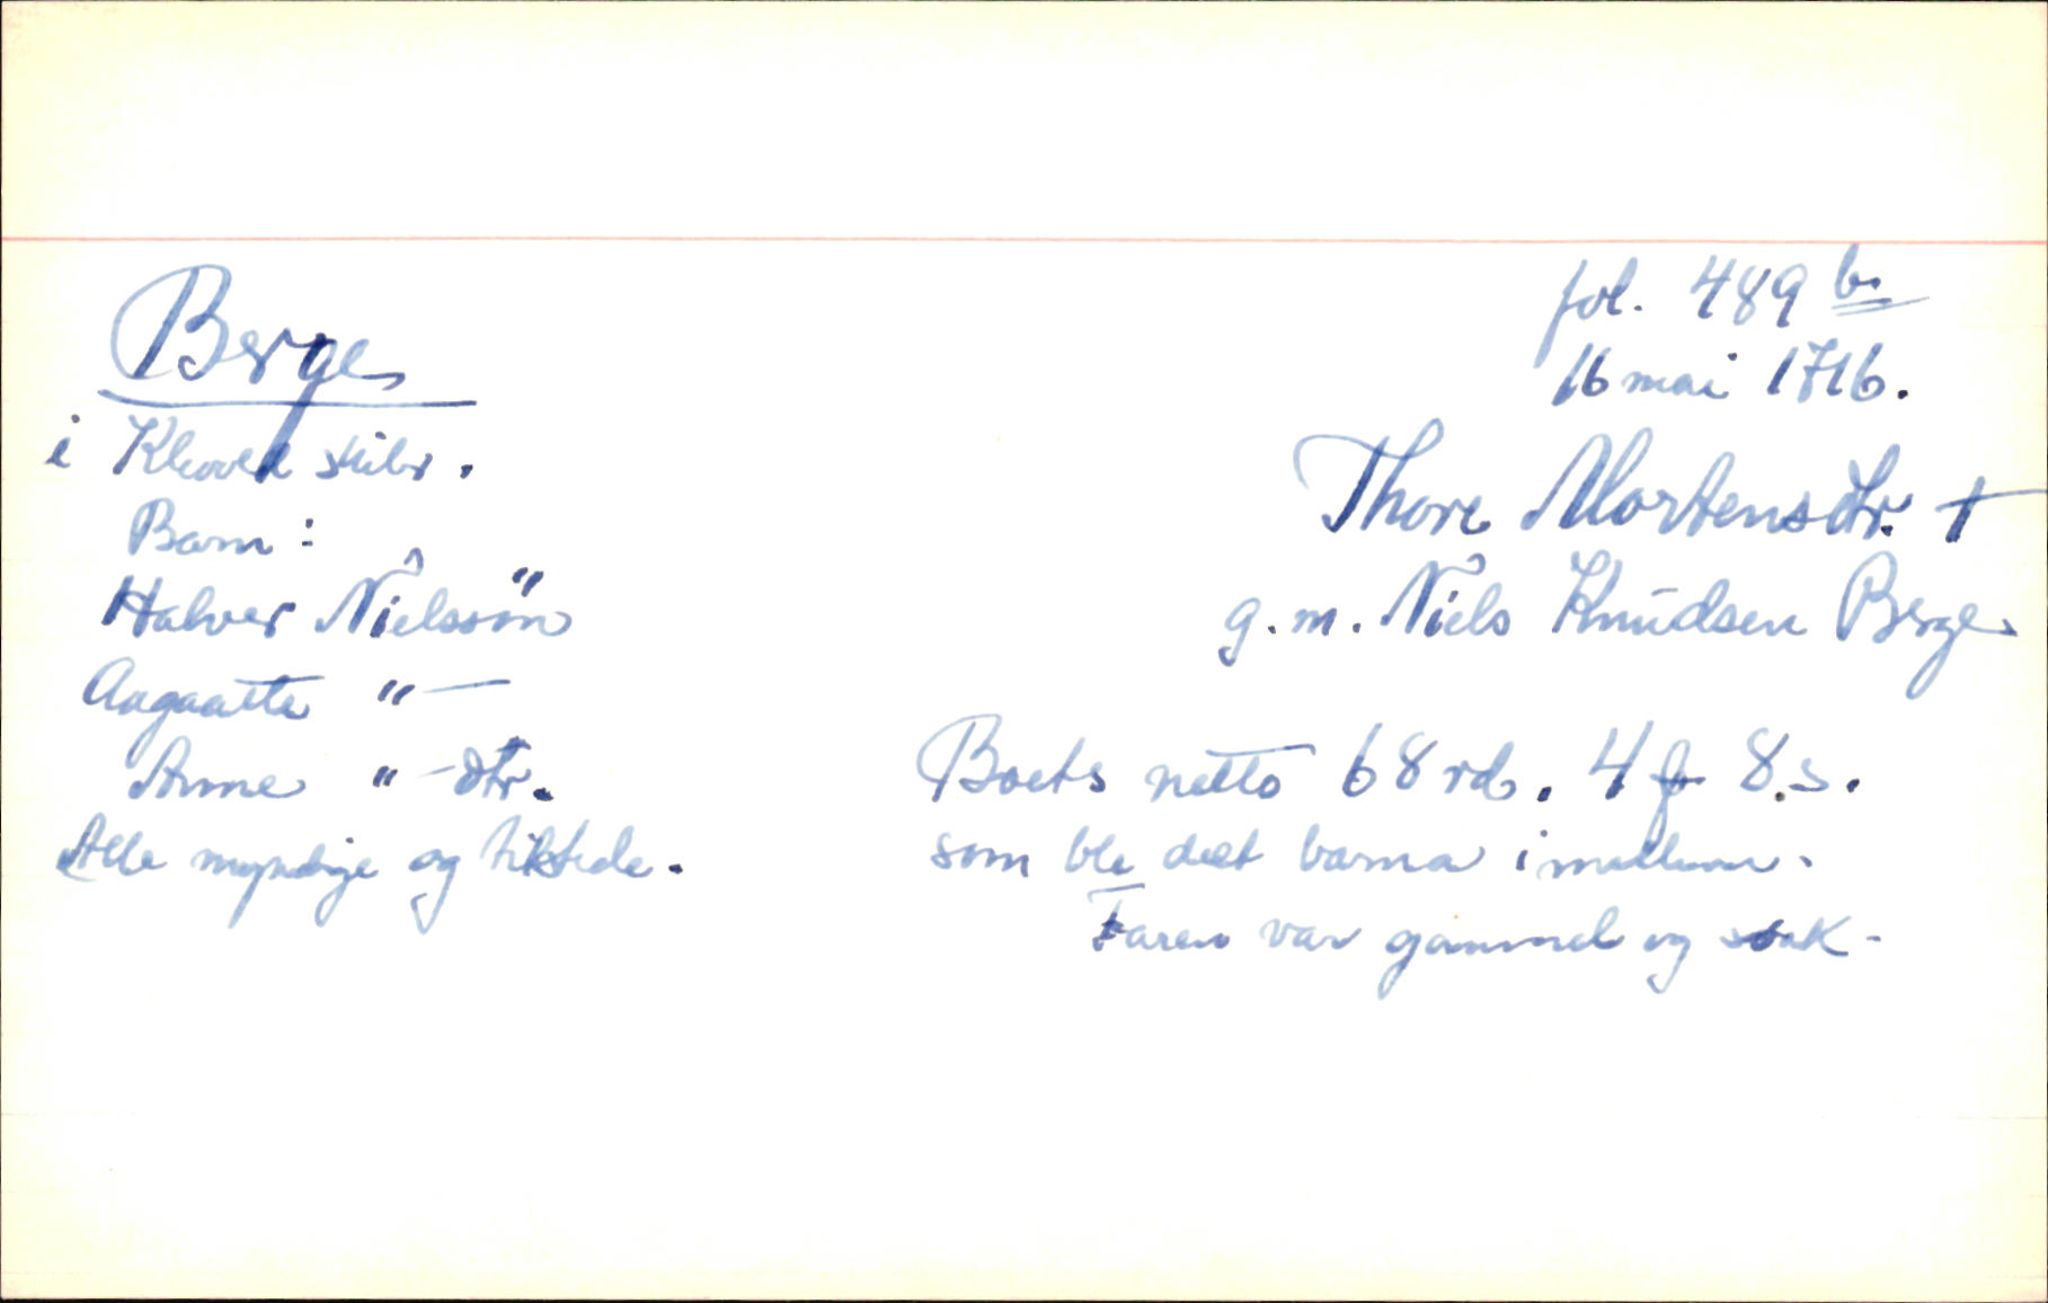 Berge
i Kleoved skibr.
Barn:
Halver Nielssön
Aagaatte "—
Anne " -dtr.
Alle myndige og tilstede.
fol. 489 b.
16 mai 1716.
Thore Mortensdtr. †
g.m. Niels Knudsen Berge
Boets netto 68 rd. 4 8 s.
som ble delt barna imellom.
Faren var gammel og svak.